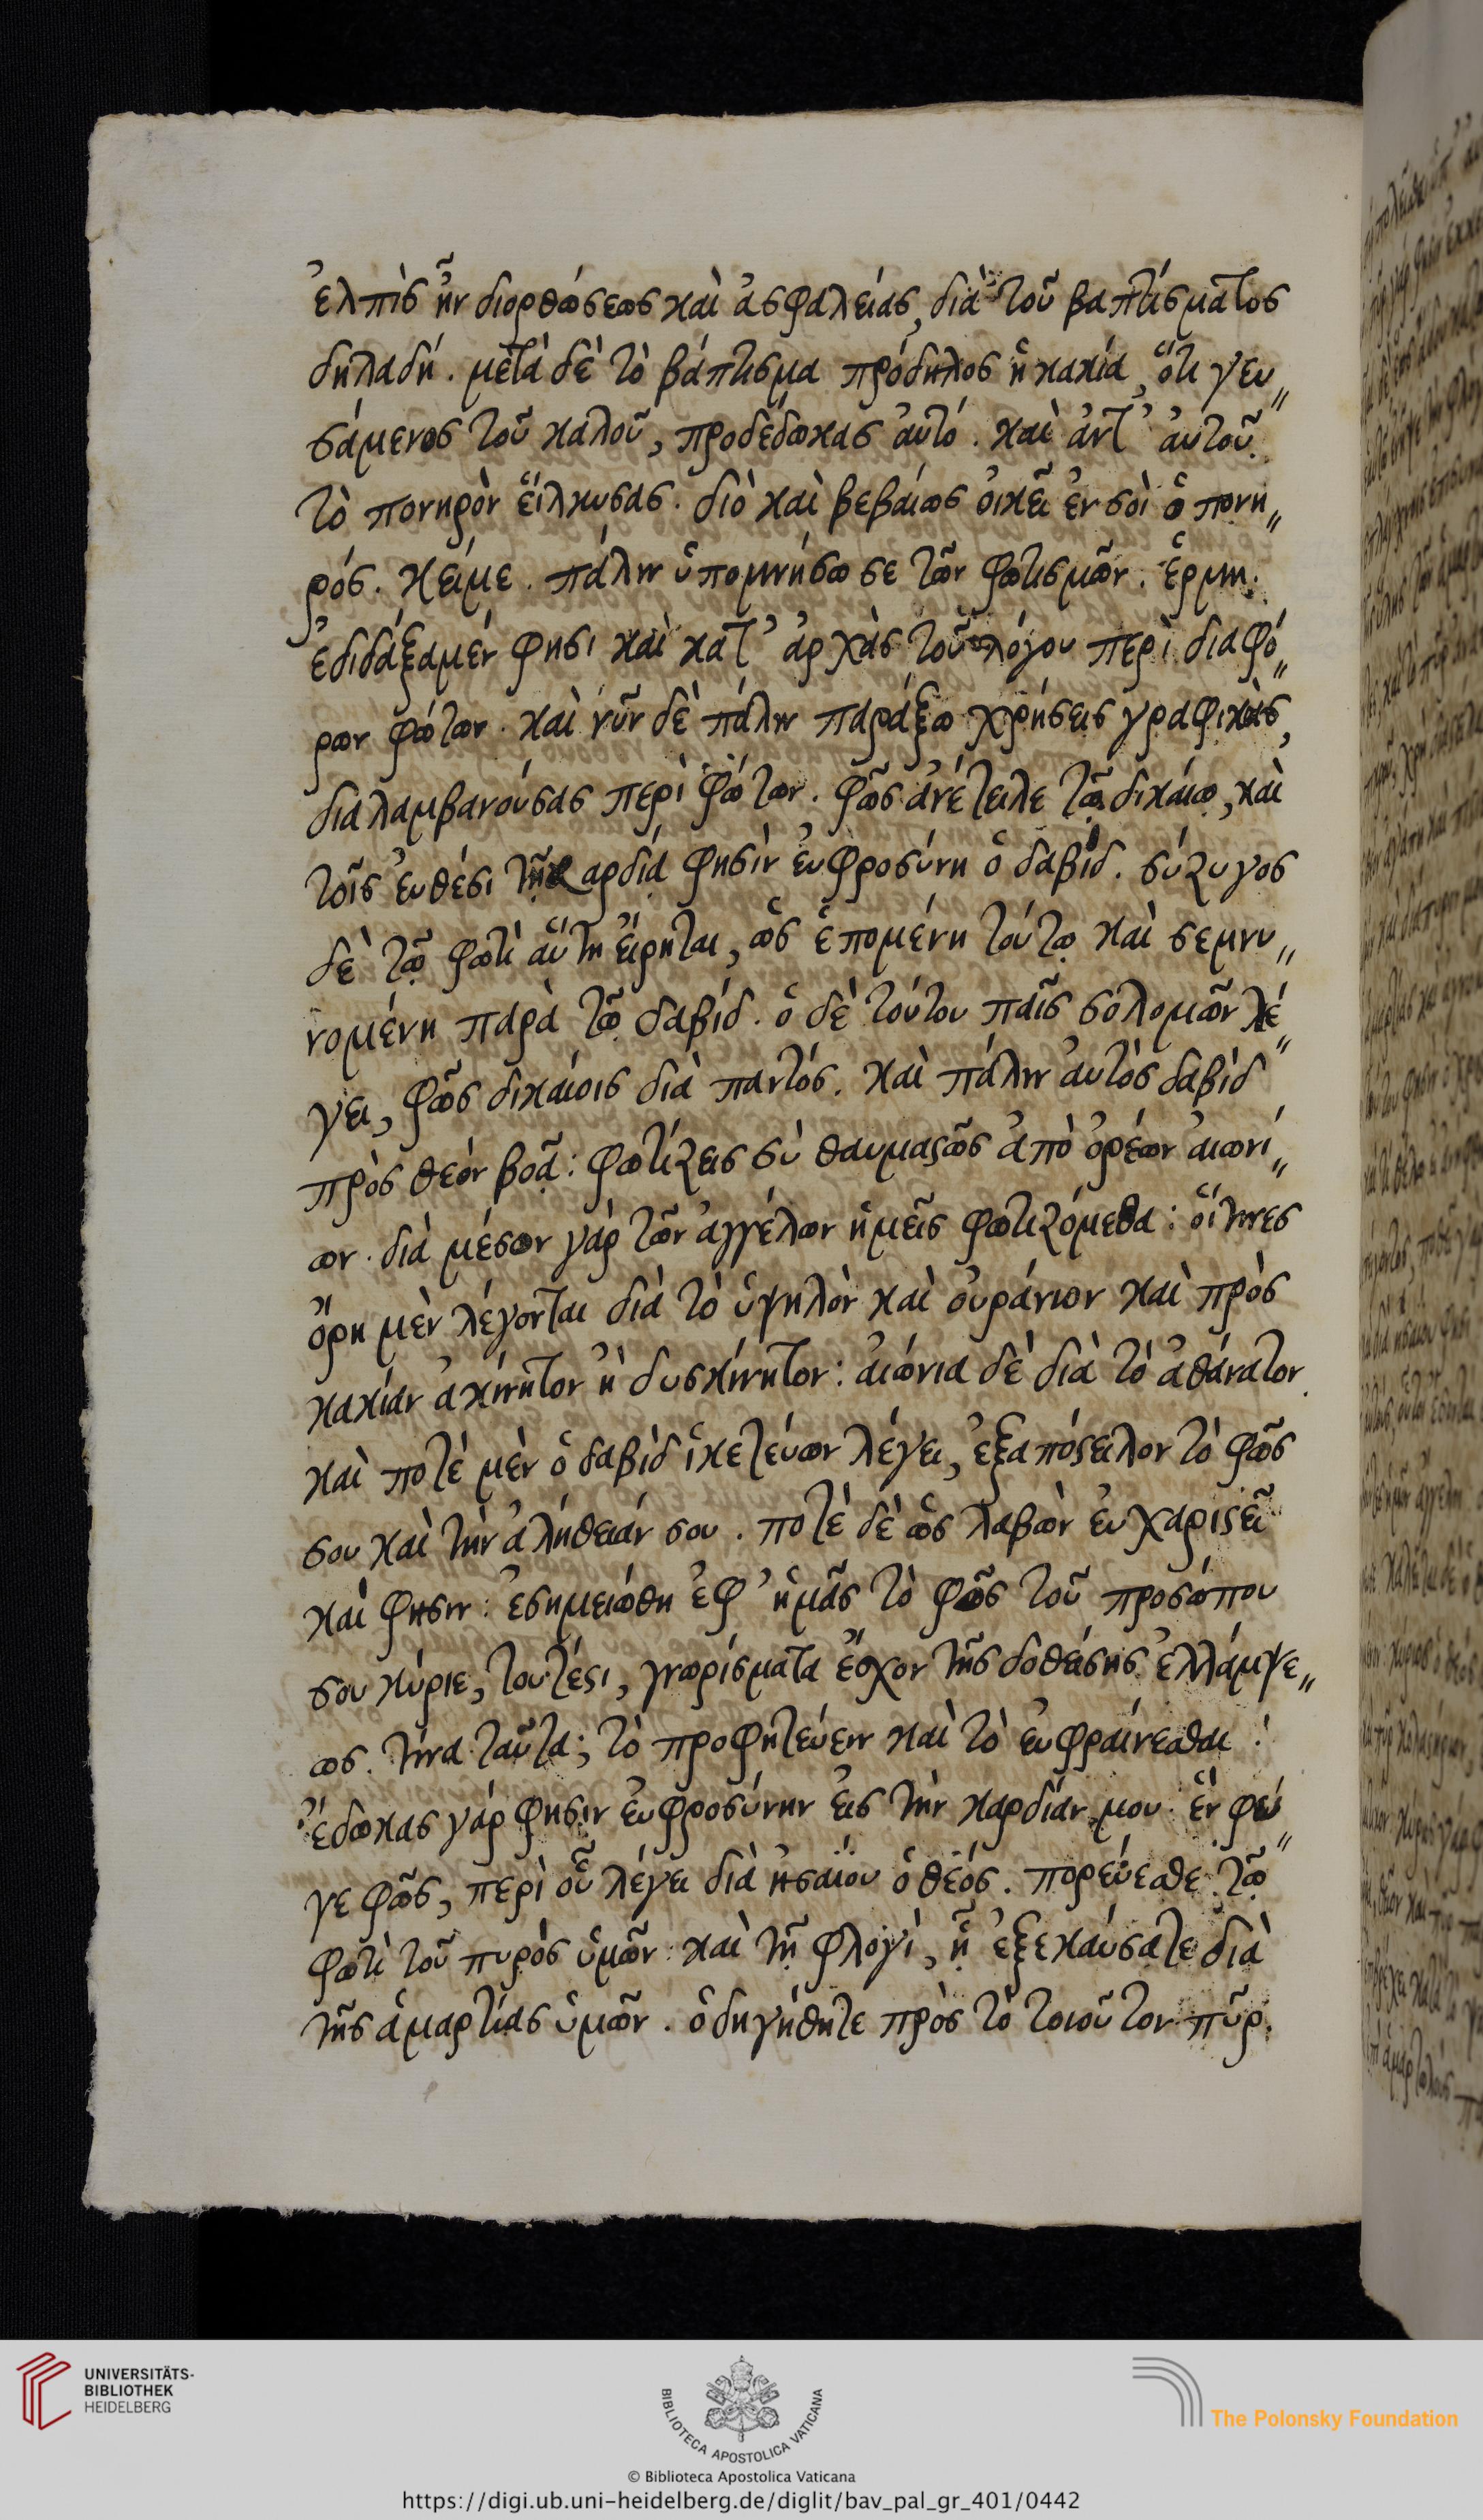 ἐλπὶς ἦν διορθώσεως καὶ ἀσφαλείας, διὰ τοῦ βαπτίσματος
δηλαδή. μετὰ δὲ τὸ βάπτισμα πρόδηλος ἡ κακία, ὅτι γευ〃
σάμενος τοῦ καλοῦ, προδέδωκας ἀυτό. καὶ ἀντ' ἀυτοῦ
τὸ πονηρὸν ἕιλκυσας. διὸ καὶ βεβαίως ὀικεῖ ἐν σοὶ ὁ πονη〃
ρός. κείμε. πάλιν ὑπομνήσω σε τῶν φωτισμῶν. ἑρμη.
ἐδιδάξαμέν φησι καὶ κατ' ἀρχὰς τοῦ λόγου περὶ διαφό〃
ρων φώτων. καὶ νῦν δὲ πάλιν παράξω χρήσεις γραφικὰς,
διαλαμβανούσας περὶ φώτων. φῶς ἀνέτειλε τῷ δικαίῳ, καὶ
τοῖς ἐυθέσι τῇ καρδίᾳ φησὶν ἐυφροσύνη ὁ δαβίδ. σύζυγος
δὲ τῷ φωτὶ ἅυτη ἔιρηται, ὡς ἑπομένη τούτῳ καὶ σεμνυ〃
νομένη παρὰ τῷ δαβίδ. ὁ δὲ τούτου παῖς σολομῶν λέ〃
γει, φῶς δικαίοις διὰ παντός. καὶ πάλιν ἀυτὸς δαβὶδ
πρὸς θεὸν βοᾷ: φωτίζεις σὺ θαυμαϛῶς ἀπὸ ὀρέων ἀιωνί〃
ων. διὰ μέσων γὰρ τῶν ἀγγέλων ἡμεῖς φωτιζόμεθα: ὅιτινες
ὄρη μὲν λέγονται διὰ τὸ ὑψηλὸν καὶ ὀυράνιον καὶ πρὸς
κακίαν ἀκίνητον ἢ δυσκίνητον: ἀιώνια δὲ διὰ τὸ ἀθάνατον.
καὶ ποτὲ μὲν ὁ δαβὶδ ἱκετεύων λέγει, ἐξαπόϛειλον τὸ φῶς
σου καὶ τὴν ἀλήθειάν σου. ποτὲ δὲ ὡς λαβὼν ἐυχαριϛεῖ
καί φησιν: ἐσημειώθη ἐφ' ἡμᾶς τὸ φῶς τοῦ προσώπου
σου κύριε, τουτέϛι, γνωρίσματα ἔσχον τῆς δοθείσης ἐλλάμψε〃
ως. τίνα ταῦτα; τὸ προφητεύειν καὶ τὸ ἐυφραίνεσθαι:
ἔδωκας γάρ φησιν ἐυφροσύνην ἐις τὴν καρδίαν μου. ἓν φεῦ〃
γε φῶς, περὶ οὗ λέγει διὰ ἡσαΐου ὁ θεός. πορεύεσθε τῷ
φωτὶ τοῦ πυρὸς ὑμῶν: καὶ τῇ φλογὶ, ᾗ ἐξεκαύσατε διὰ
τῆς ἁμαρτίας ὑμῶν. ὁδηγήθητε πρὸς τὸ τοιοῦτον πῦρ.
UNIVERSITÄTS-
BIBLIOTHEK
HEIDELBERG
BIBLIOTECA APOSTOLICA VATICANA
© Biblioteca Apostolica Vaticana
The Polonsky Foundation
https://digi.ub.uni-heidelberg.de/diglit/bav_pal_gr_401/0442